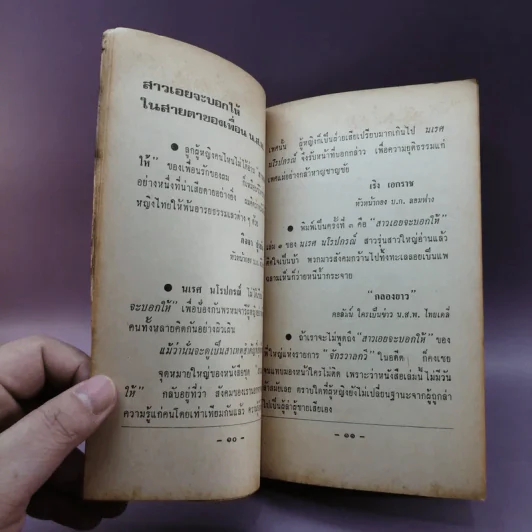 สาวเอยจะบอกให้
ในสายตาของเพื่อน น.ส.พ.
● ลูกผู้หญิงคนไหนไม่ได้อ่าน
ให้" ของเพื่อนรักของผม
อย่างหนึ่งที่น่าเสียดายอย่างยิ่ง
หญิงไทยให้พ้นสารยธรรมเลวต่าง ๆ
หัวหน้ากอง
● นเรศ นโรปกรณ์
จะบอกให้" เพื่อป้องกันพรหมจารีผู้หญิง
คนทั้งหลายคิดกันอย่างผิวเผิน
แม้ว่านั่นจะดูเป็นสาเหตุ
จุดหมายใหญ่ของหนังสือชุด
ให้" กลับอยู่ที่ว่า สังคมของเรา
ความรู้แก่คนโดยเท่าเทียมกันแล้ว
— ๑๐ —
เพศนั้น ผู้หญิงก็เป็นฝ่ายเสียเปรียบมากเกินไป นเรศ
นโรปกรณ์ จึงรับหน้าที่บอกกล่าว เพื่อความยุติธรรมแก่
เพศแม่อย่างกล้าหาญชาญชัย
เริง เอกราช
หัวหน้ากอง บ.ก. จอมพ่าง
● พิมพ์เป็นครั้งที่ ๓ คือ "สาวเอยจะบอกให้"
เล่ม ๑ ของ นเรศ นโรปกรณ์ สาวรุ่นสาวใหญ่อ่านแล้ว
ติดใจเป็นบ้า พวกมารสังคมกว้านไปทิ้งทะเลลอยเป็นแพ
ฉลามเห็นก็ว่ายหนีน้ำกระจาย
"กลองยาว"
คอลัมน์ ใครเป็นข่าว น.ส.พ. ไทยเดลี่
● ถ้าเราจะไม่พูดถึง "สาวเอยจะบอกให้" ของ
ใหญ่แห่งรายการ "จักรวาลกวี" ในอดีต ก็คงเขย
แทบมองหน้าใครไม่ติด เพราะว่าหนังสือเล่มนี้ ไม่มีวัน
ล้าสมัยเลย ตราบใดที่ผู้หญิงยังไม่เปลี่ยนฐานะจากผู้ถูกล่า
ไปเป็นผู้ล่าผู้ชายเสียเอง
— ๑๑ —